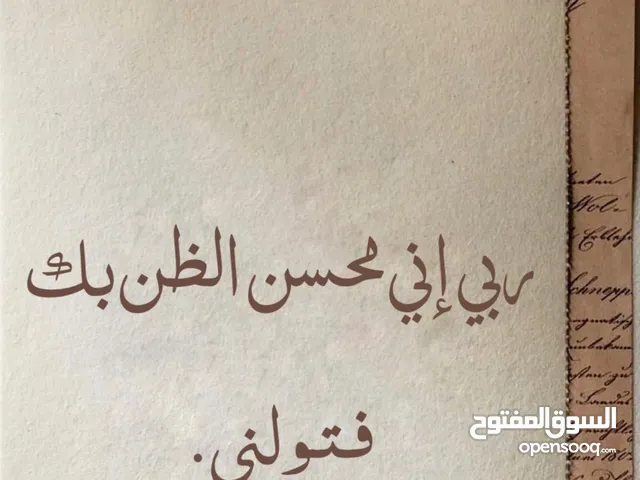 ربي إني محسن الظن بك
فتولني.
السوق المفتوح
opensooq.com